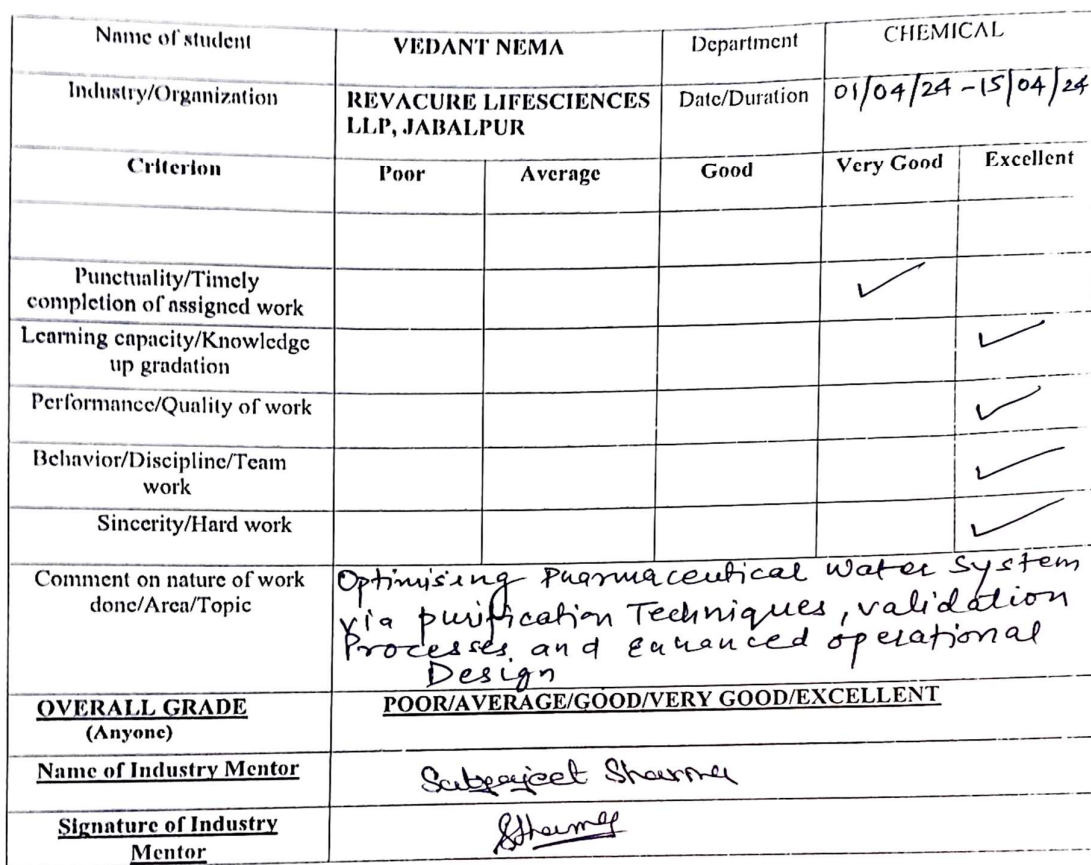 Name of student VEDANT NEMA Department CHEMICAL
Industry/Organization REVACURE LIFESCIENCES LLP, JABALPUR Date/Duration 01/04/24 - 15/04/24
Criterion Poor Average Good Very Good Excellent
Punctuality/Timely
completion of assigned work ✓
Learning capacity/Knowledge
up gradation ✓
Performance/Quality of work ✓
Behavior/Discipline/Team
work ✓
Sincerity/Hard work ✓
Comment on nature of work
done/Area/Topic
Optimising Pharmaceutical Water System
via purification Techniques, validation
Processes and Enhanced operational
Design
OVERALL GRADE POOR/AVERAGE/GOOD/VERY GOOD/EXCELLENT
(Anyone)
Name of Industry Mentor Sharma
Signature of Industry
Mentor